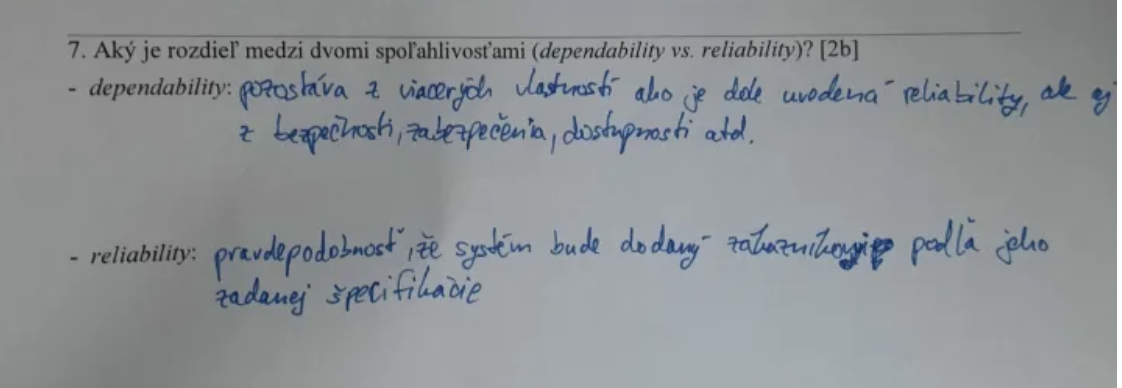 7. Aký je rozdieľ medzi dvomi spoľahlivosťami (dependability vs. reliability)? [2b]
- dependability: pozostáva z viacerých vlastností ako je dole uvedená reliability, ale aj
z bezpečnosti, zabezpečenia, dostupnosti atď.
- reliability: pravdepodobnosť, že systém bude dodaný zákazníkovi podľa jeho
zadanej špecifikácie